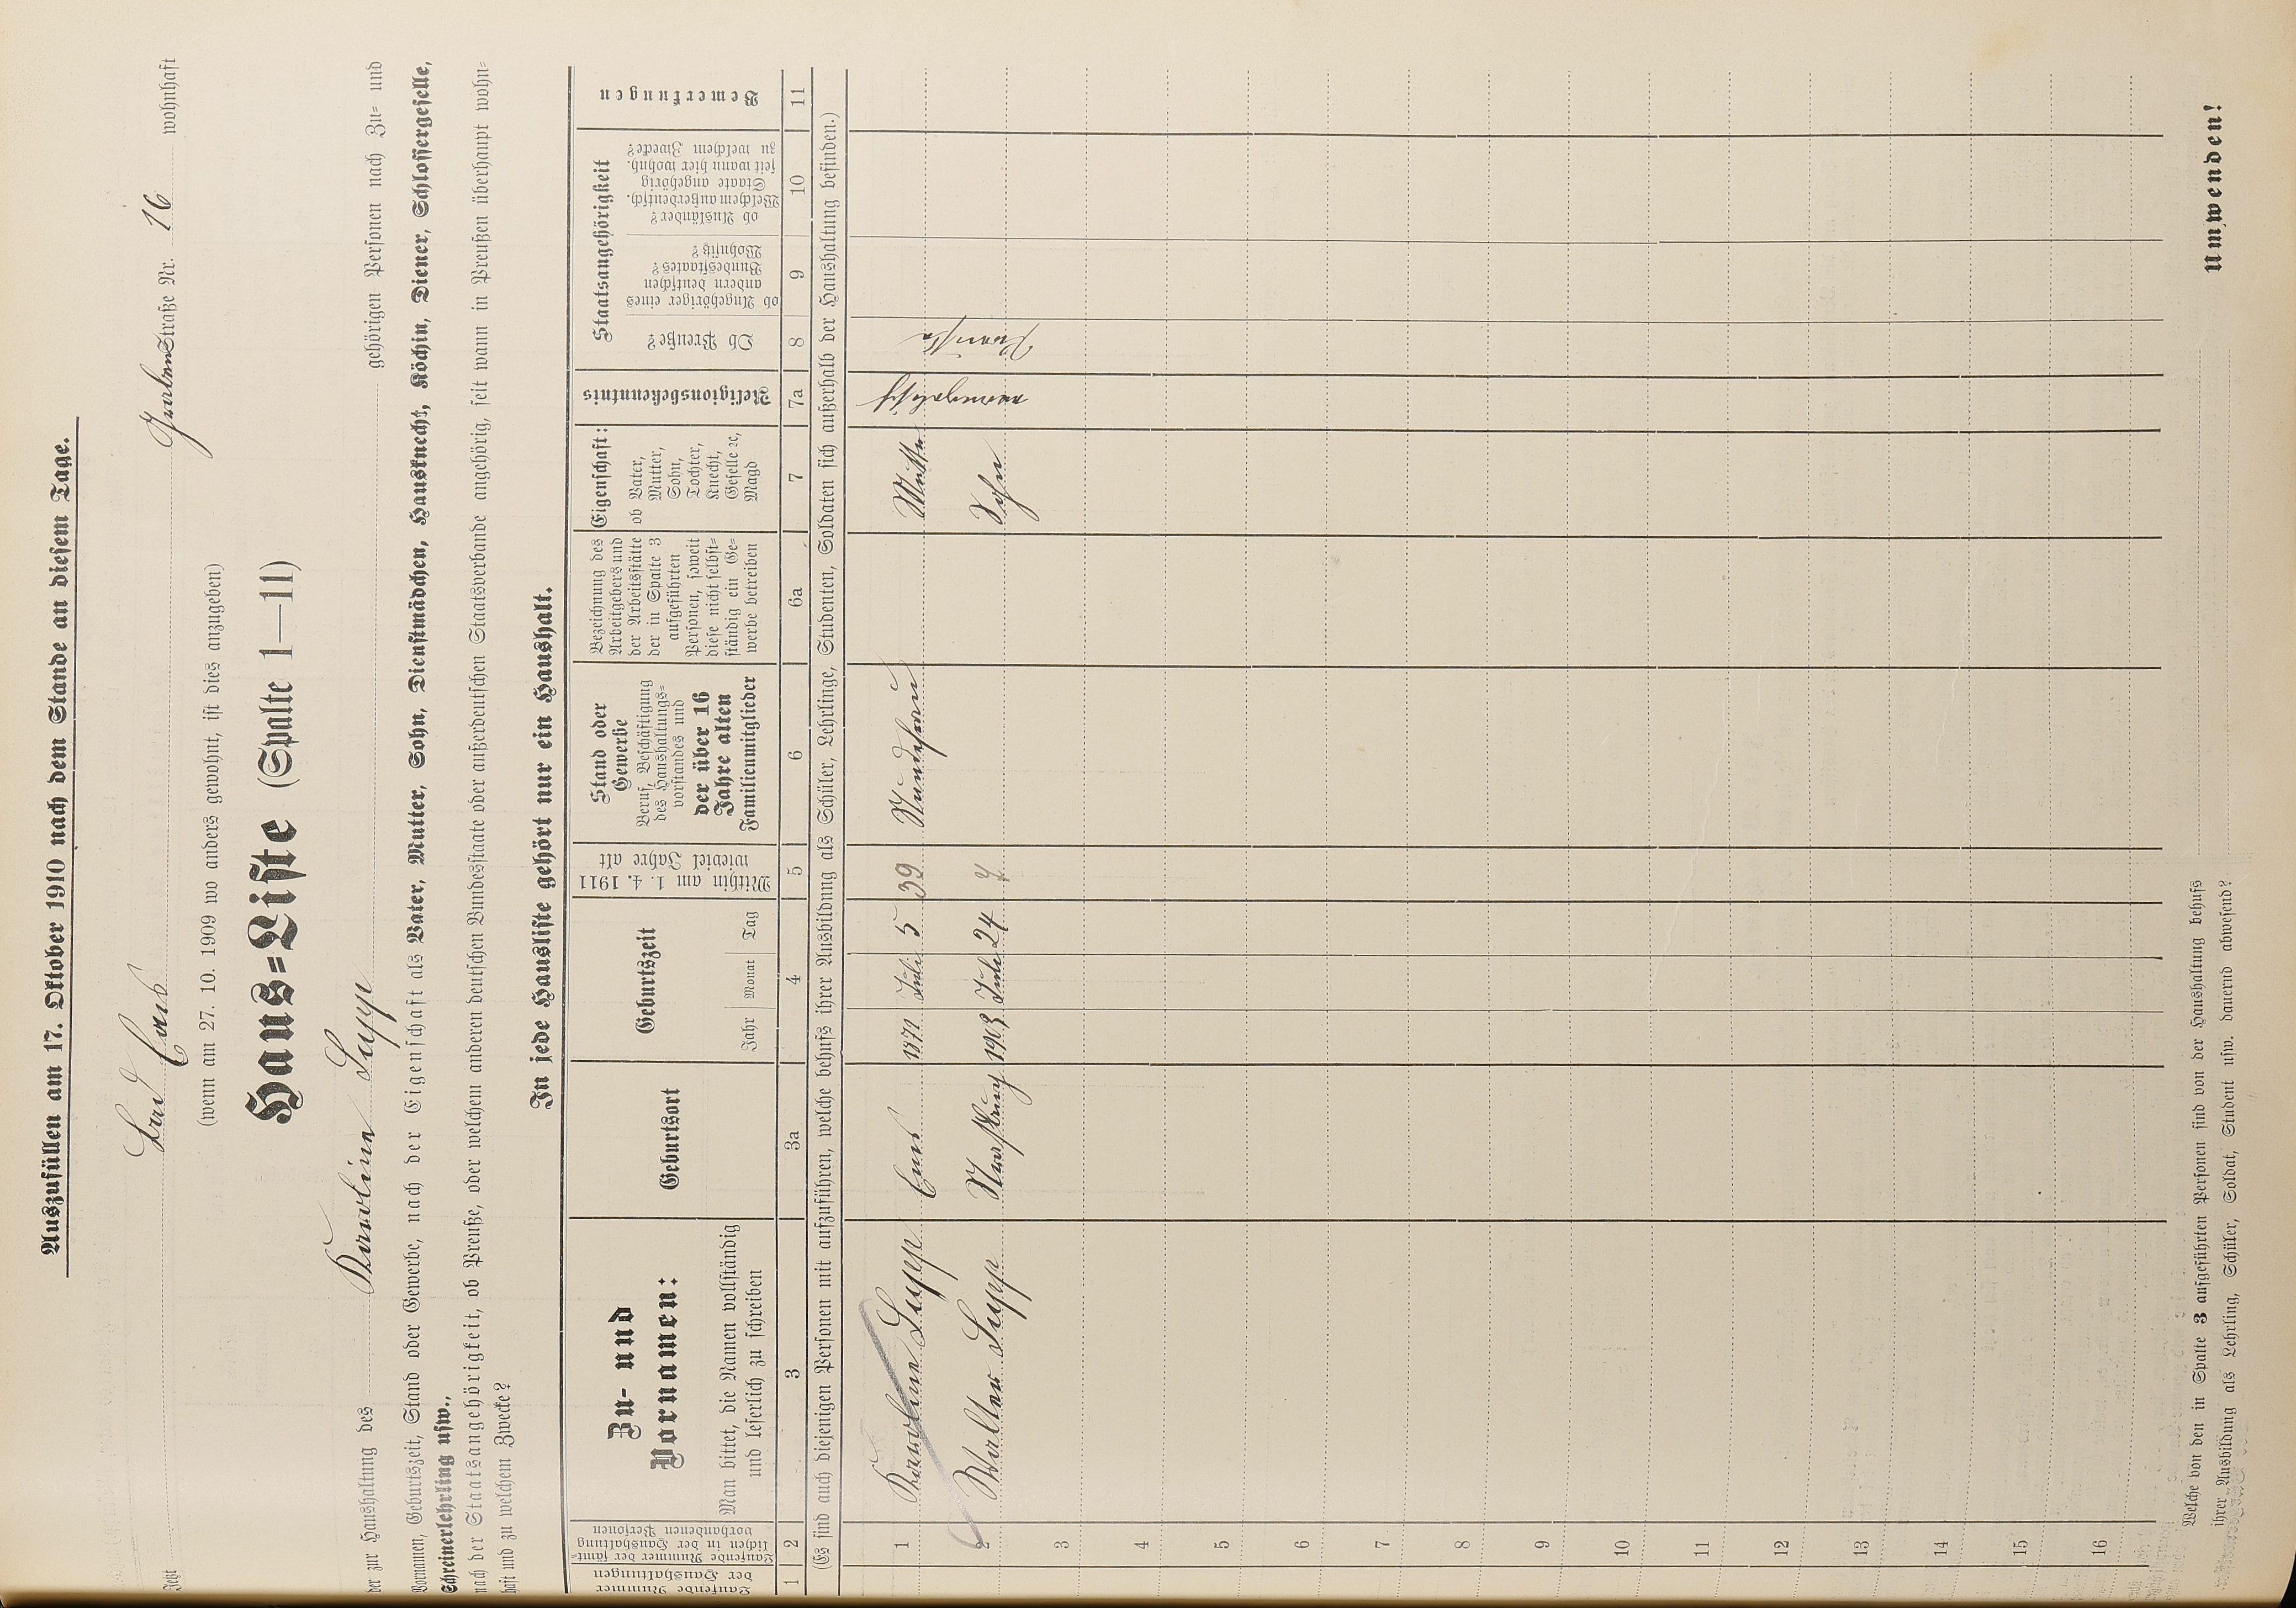 Auszufüllen am 17. Oktober 1910 nach dem Stande an diesem Tage.
Jetzt Bad Ems Grabenstraße Nr. 16 wohnhaft
(wenn am 27. 10. 1909 wo anders gewohnt, ist dies anzugeben)
Haus=Liste (Spalte 1—11)
der zur Haushaltung des Karoline Supp gehörigen Personen nach Zu= und
Vornamen, Geburtszeit, Stand oder Gewerbe, nach der Eigenschaft als Vater, Mutter, Sohn, Dienstmädchen, Hausknecht, Köchin, Diener, Schlossergeselle,
Schreinerlehrling usw.,
nach der Staatsangehörigkeit, ob Preuße, oder welchem anderen deutschen Bundesstaate oder außerdeutschen Staatsverbande angehörig, seit wann in Preußen überhaupt wohn=
haft und zu welchem Zwecke?
In jede Hausliste gehört nur ein Haushalt.
Laufende Nummer
der Haushaltungen
Laufende Nummer der sämt=
lichen in der Haushaltung
vorhandenen Personen
Zu- und
Vornamen:
Man bittet, die Namen vollständig
und leserlich zu schreiben
Geburtsort
Geburtszeit
Jahr Monat Tag
Mithin am 1. 4. 1911
wieviel Jahre alt
Stand oder
Gewerbe
Beruf, Beschäftigung
des Haushaltungs=
vorstandes und
der über 16
Jahre alten
Familienmitglieder
Bezeichnung des
Arbeitgebers und
der Arbeitsstätte
der in Spalte 3
aufgeführten
Personen, soweit
diese nicht selbst=
ständig ein Ge=
werbe betreiben
Eigenschaft:
ob Vater,
Mutter,
Sohn,
Tochter,
Knecht,
Geselle ꝛc,
Magd
Religionsbekenntnis
Staatsangehörigkeit
Ob Preuße?
ob Angehöriger eines
andern deutschen
Bundesstaates?
Wohnsitz?
ob Ausländer?
Welchem außerdeutsch.
Staate angehörig
seit wann hier wohnh.
zu welchem Zwecke?
Bemerkungen
1 2 3 3a 4 5 6 6a 7 7a 8 9 10 11
(Es sind auch diejenigen Personen mit aufzuführen, welche behufs ihrer Ausbildung als Schüler, Lehrlinge, Studenten, Soldaten sich außerhalb der Haushaltung befinden.)
1 Karoline Supp Ems 1871 Juli 5 39 Mutter
2 Walter Supp 1903 Juli 24 7 Sohn
evangelisch
3
4
5
6
7
8
9
10
11
12
13
14
15
16
Welche von den in Spalte 3 aufgeführten Personen sind von der Haushaltung behufs
ihrer Ausbildung als Lehrling, Schüler, Soldat, Student usw. dauernd abwesend?
Umwenden!